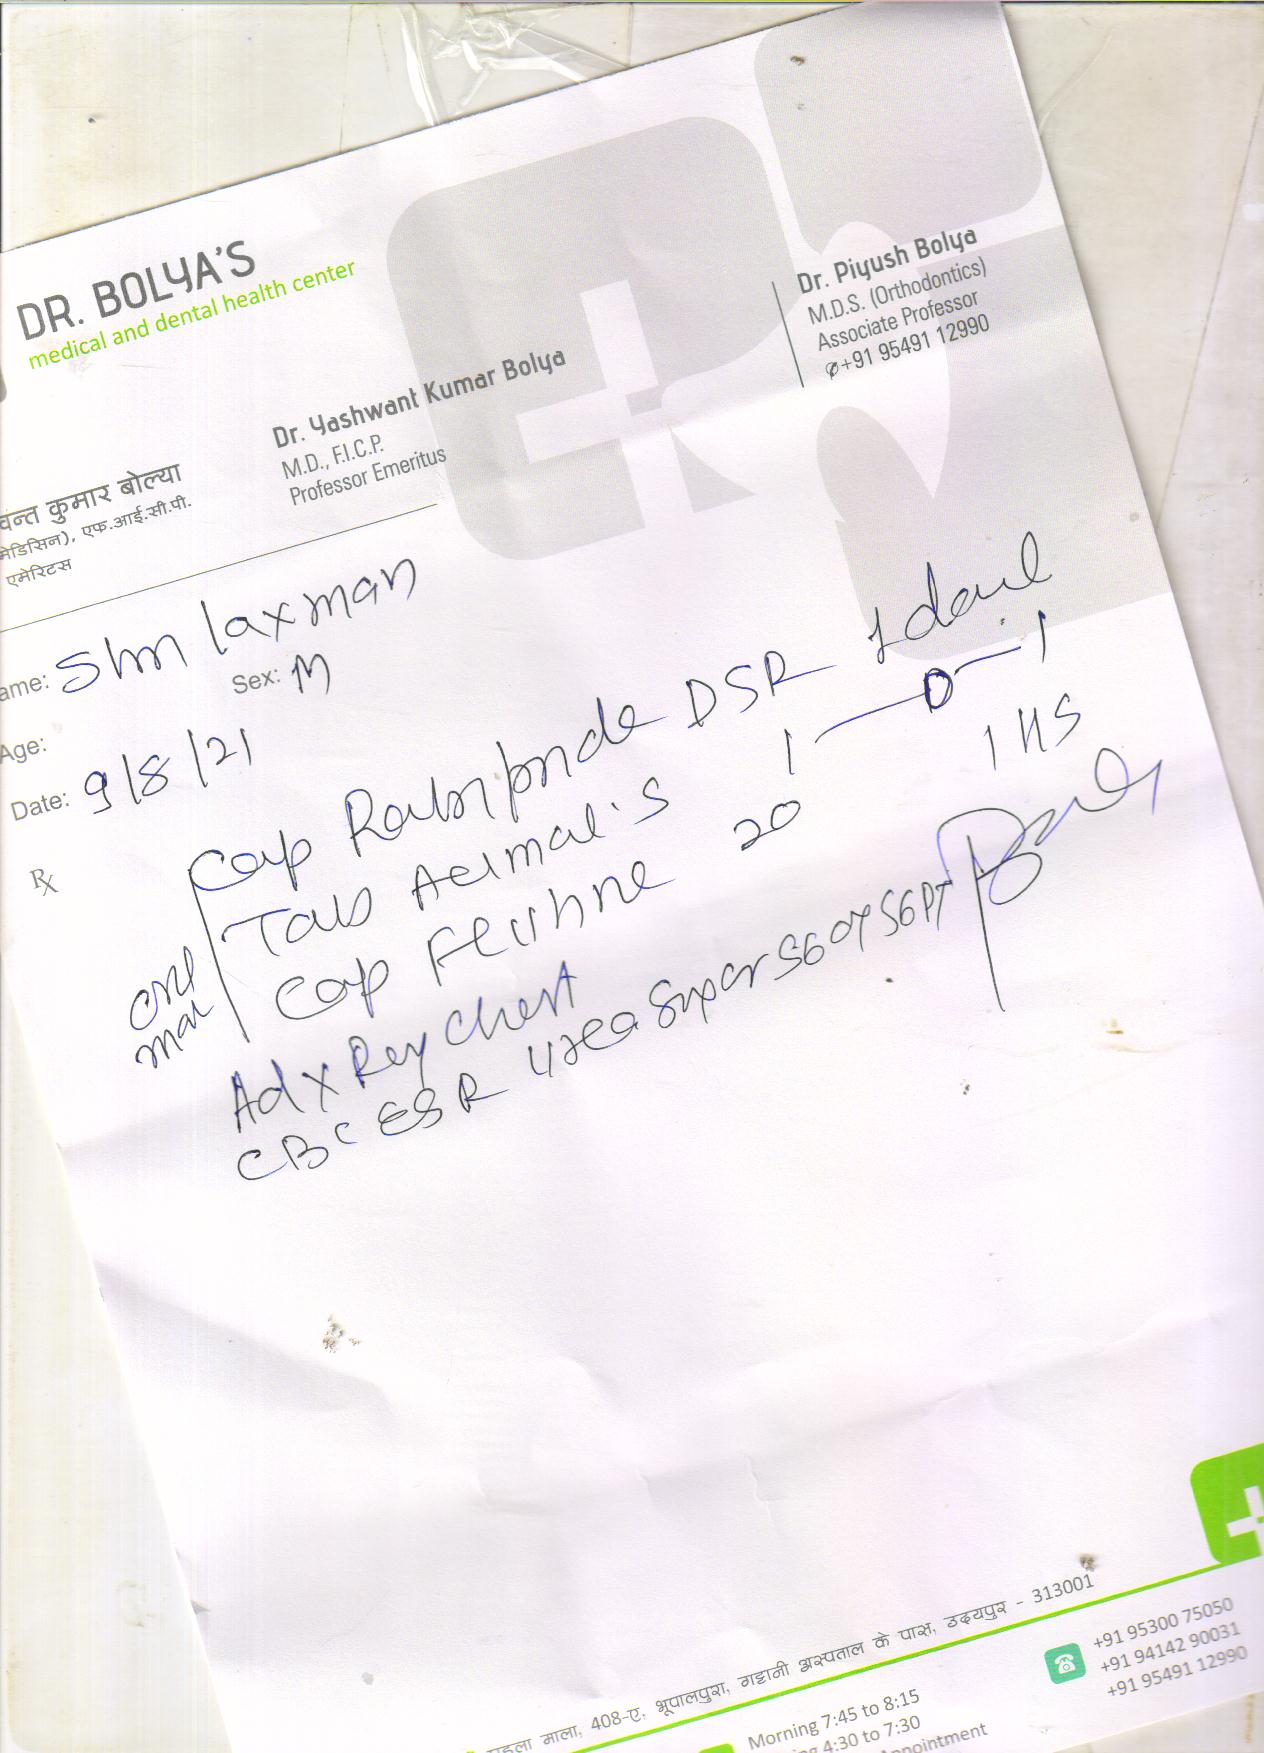 DR. BOLYA'S
medical and dental health center
Dr. Piyush Bolya
M.D.S. (Orthodontics)
Associate Professor
✆+91 95491 12990
Dr. Yashwant Kumar Bolya
M.D., F.I.C.P.
Professor Emeritus
वन्त कुमार बोल्या
मेडिसिन), एफ.आई.सी.पी.
एमेरिटस
ame: Shri Laxman
Sex: M
Age:
Date: 9/8/21
Rx
Cap DSR 1 daily
Tab 's 1 — 0 — 1
Cap 20 1 HS
Ad X Ray Chest
CBC ESR Urea Sugar SGOT SGPT
माला, 408-ए, भूपालपुरा, गट्टानी अस्पताल के पास, उदयपुर - 313001
Morning 7:45 to 8:15
4:30 to 7:30
+91 95300 75050
+91 94142 90031
+91 95491 12990